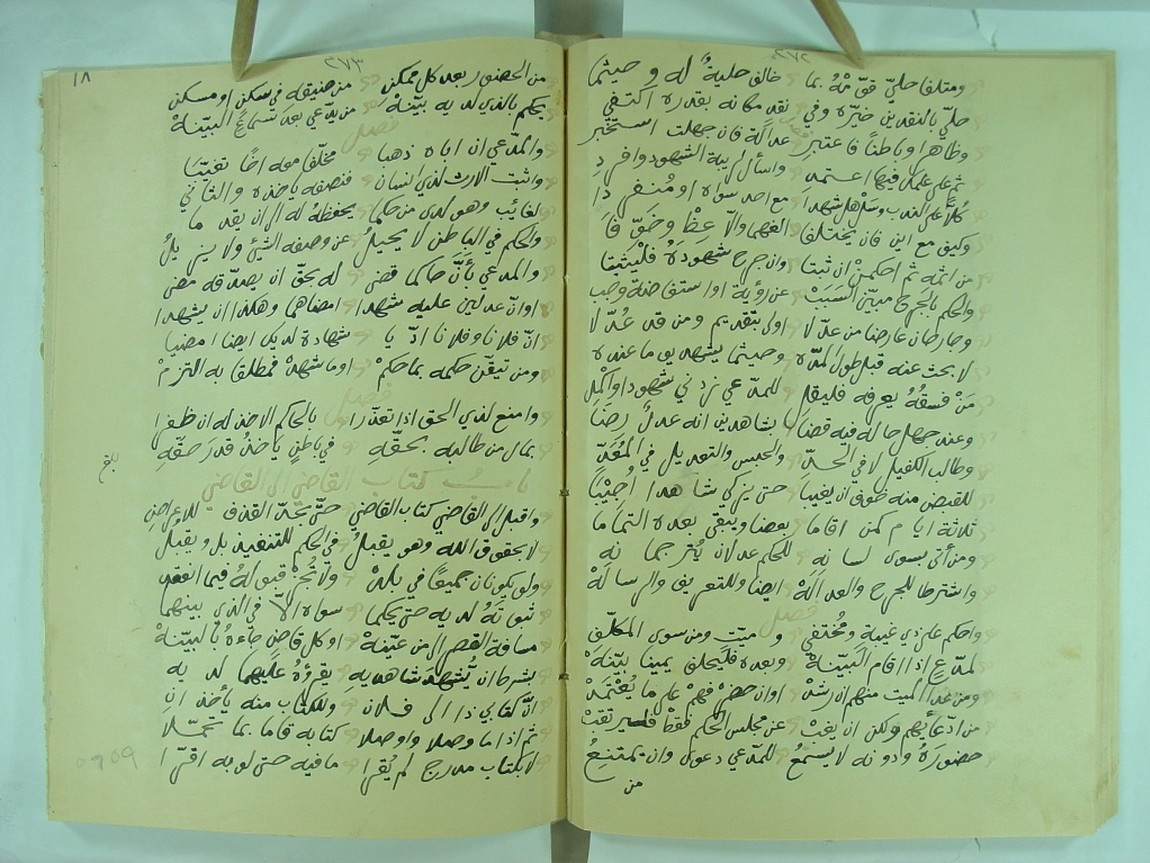 ٢٧٢
ومتلفا حليّ قوّمهُ بما خالف حليةً له وحيثما
حليّ بالنقدين خيّره وفي نقد مكانه بقدره اكتفي
فصل
وظاهرا وباطنًا فاعتبرِ عدالة فان جهلت استخبرِ
ثم علم عمل فيها اعتمد واسأل لريبة الشهود وافردِ
كُلّا عن وسل هل شهدا مع احد سواه او منفردا
وكيف مع اين فان يختلفا الغهما والّا عِظْ وخوّفا
من اثمه ثم احكمنْ ان ثبتا وان جرح شهودَهُ فليُثبتا
والحكم بالجرح مبيّن السبَبْ عن رؤية او استفاضة وجب
وجارحان عارضا من عدّلا اولى بتقديم ومن قد عُدّلا
لا بحث عنه قبل طول المدّه وحيثما يشهد بما عنده
مَنْ فسقُهُ يعرفه فليقلِ للمدّعي زدني شهودا واكملِ
وعند جهل حاله فيه قضا بشاهدين انه عدلٌ رضَا
وطالب الكفيل لا في الحدّ والحبس والتعديل في المُعَدِّ
للقبض منه خوف ان يغيبا حتى يزكي شاهدا اُجيْبَا
ثلاثة ايام كمن اقاما بعضا ويبقي بعده التماما
ومن أتى بسوى لسانه للحكم عدلان يُترجمانه
واشترطا للجرح والعدالَهْ ايضا وللتعريف والرسالَهْ
فصل
واحكم على ذي غيبة ومُختفي وميّت ومن سوى المكلّفِ
لمدّعٍ اذا اقام البيّنَهْ وبعده فليحلف يمينا بيّنَهْ
ومن عدا الميت منهم ان رشدْ اوان حضرْ فهمْ على ما يُعْتَمَدْ
من ادّعا بهم ولكن ان يغبْ عن مجلس الحكم فقطْ فليرتقبْ
حضورَهُ ودونه لا يسمعُ للمدّعي دعوىً وان يمتنعُ
من
٢٧٣
١٨
من الحضور بعد كل ممكنِ من ضيقه في سكنٍ او مسكنِ
يحكم بالذي لديه بيّنَهْ من يدّعي بعد سماع البيّنَهْ
فصل
والمدّعي ان اباه ذهبا مخلّفا معه اخًا تغيّبَا
واثبت الارث لذي لسان فنصفه يأخذه والثاني
لغائب وهو لدى من حكما يحفظهُ له الى ان يقدما
والحكم في الباطن لا يحيلُ عن وصفه الشيئ ولا يزيلُ
والمدعي بأنَّ حاكما قضى له بحقّ ان يصدّقه مضى
او انّ عدلين عليه شهدا امضاهما وهكذا ان يشهدا
انّ فلانا وفلانا ادّيا شهادة لديك ايضا امضيا
ومن تيقّن حكمه بما حكمْ او ما شهدْ فمطلقا به التزمْ
فصل
وامنع لذي الحق اذا تعذّرا بالحاكم الاخذ له ان ظفرا
بمال من طالبه بحقّهِ في باطنٍ يأخذُ قدرَ حقّهِ
بلغ
باب كتاب القاضي الى القاضي
واقبل الى القاضي كتاب القاضي حتّى بحدّ القذف للاعراضِ
لا بحقوق الله وهو يقبلُ في الحكم للتنفيذ بل ويقبلُ
ولو يكونان جميعًا في بلدْ ولا تُجِزْ قبولَهُ فيما انعقدْ
ثبوتهُ لديه حتى يحكما سواه الّا في الذي بينهما
مسافة القصر الى من عيّنَهْ او كل قاضٍ جاءهُ بالبيّنَهْ
بشرط ان يُشهد شاهديهِ يقرؤهُ عليهما لديه
انّ كتابي ذا الى فلان وللكتاب منه يأخذانِ
ثم اذا ما وصلا واوصلا كتابه قاما بما تحمّلا
لا بكتاب مدرج لم يُقرا ما فيه حتى لو به اقرّا